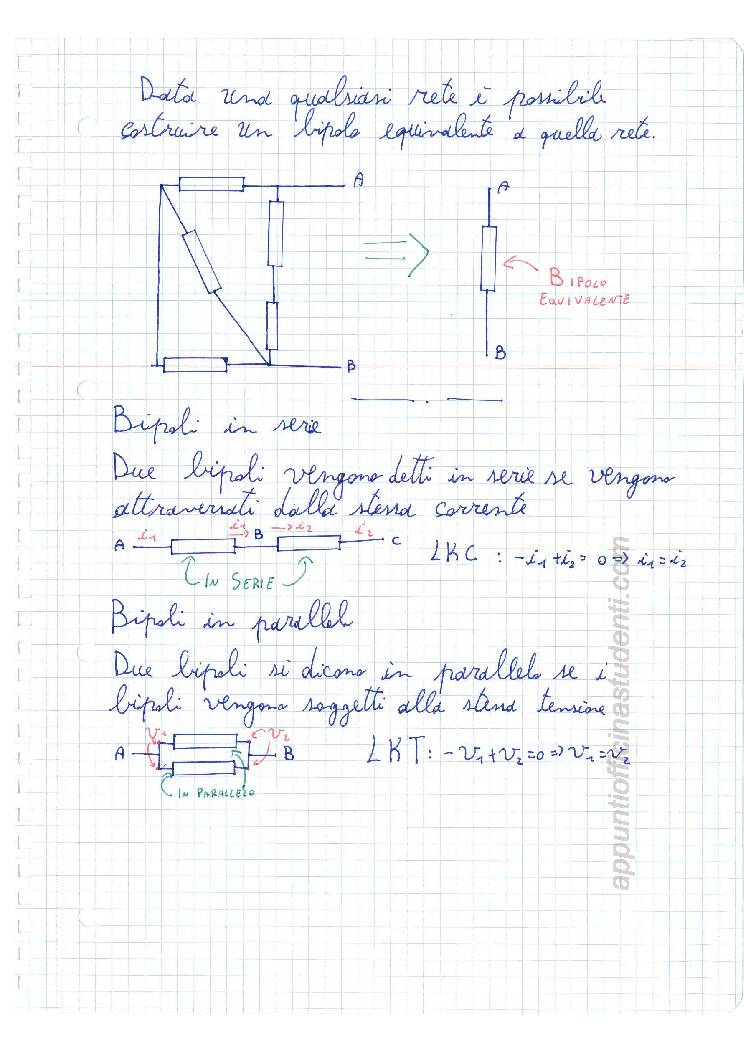 Data una qualsiasi rete è possibile
costruire un bipolo equivalente a quella rete.
A
A
BIPOLO
EQUIVALENTE
B
B
Bipoli in serie
Due bipoli vengono detti in serie se vengono
attraversati dalla stessa corrente
A i1 i1 B i2 i2 C LKC : -i1 + i2 = 0 => i1 = i2
IN SERIE
Bipoli in parallelo
Due bipoli si dicono in parallelo se i
bipoli vengono soggetti alla stessa tensione
A V1 V2 B LKT: -V1 + V2 = 0 => V1 = V2
IN PARALLELO
appuntiofficinastudenti.com